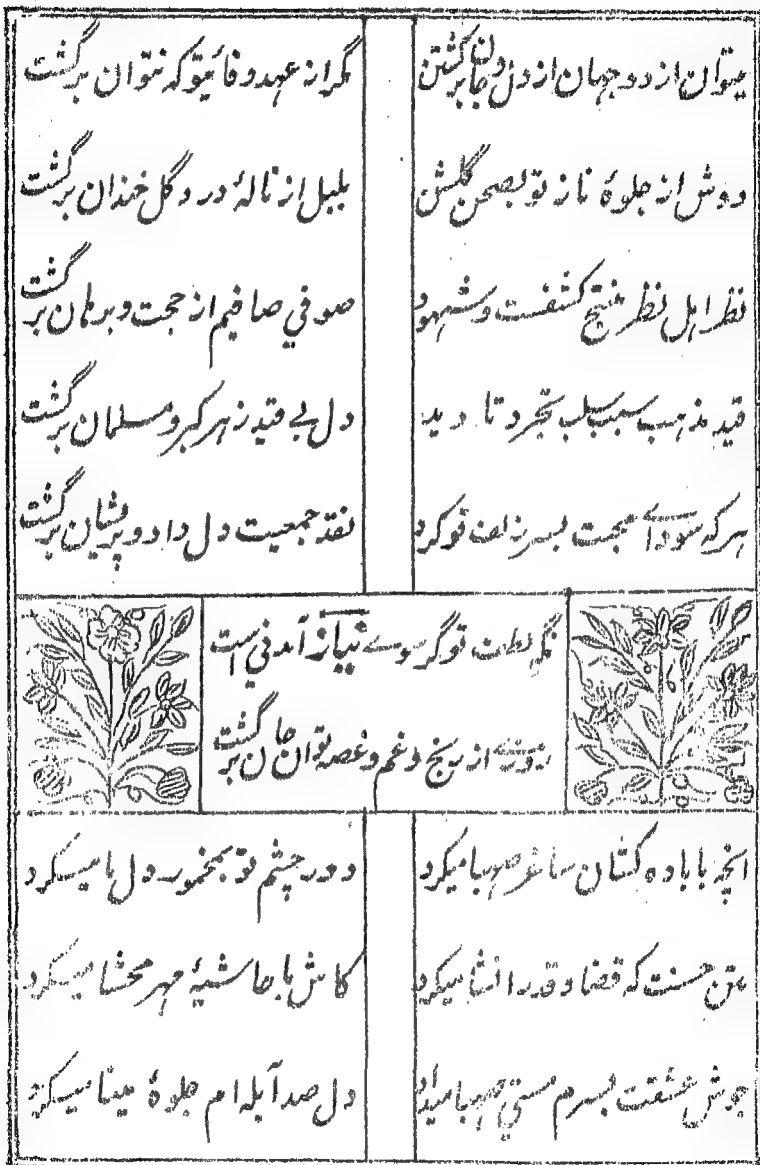 میتوان از دو جہان از دل و جان برگشتن مگر از عہد و فائیتو که نتوان برگشت
دوش از جلوۂ ناز تو بصحن گلشن بلبل از نالۂ درد و گل خندان برگشت
نظر اہل نظر منتج کشفست و شہود صوفي صافیم از حجت و برہان برگشت
قید مذہب سبب سلب تجرد تا دید دل بے قید ز ہر گبر و مسلمان برگشت
ہر که سوداے محبت بسر زلف تو کرد نقد جمعیت دل داد و پریشان برگشت
نگہ لطف تو گر سوے نیاز آمدنی است
روزے از رنج و غم و غصه توان جان برگشت
انچه با باده کشان ساغر صہبا میکرد دور چشم تو بمخمور دل ما میکرد
متن حسنت که قضا و قدر انشا میکرد کاش با حاشیۂ مہر محشا میکرد
جوش عشقت بسرم مستي صہبا میداد دل صد آبله ام جلوۂ مینا میکرد